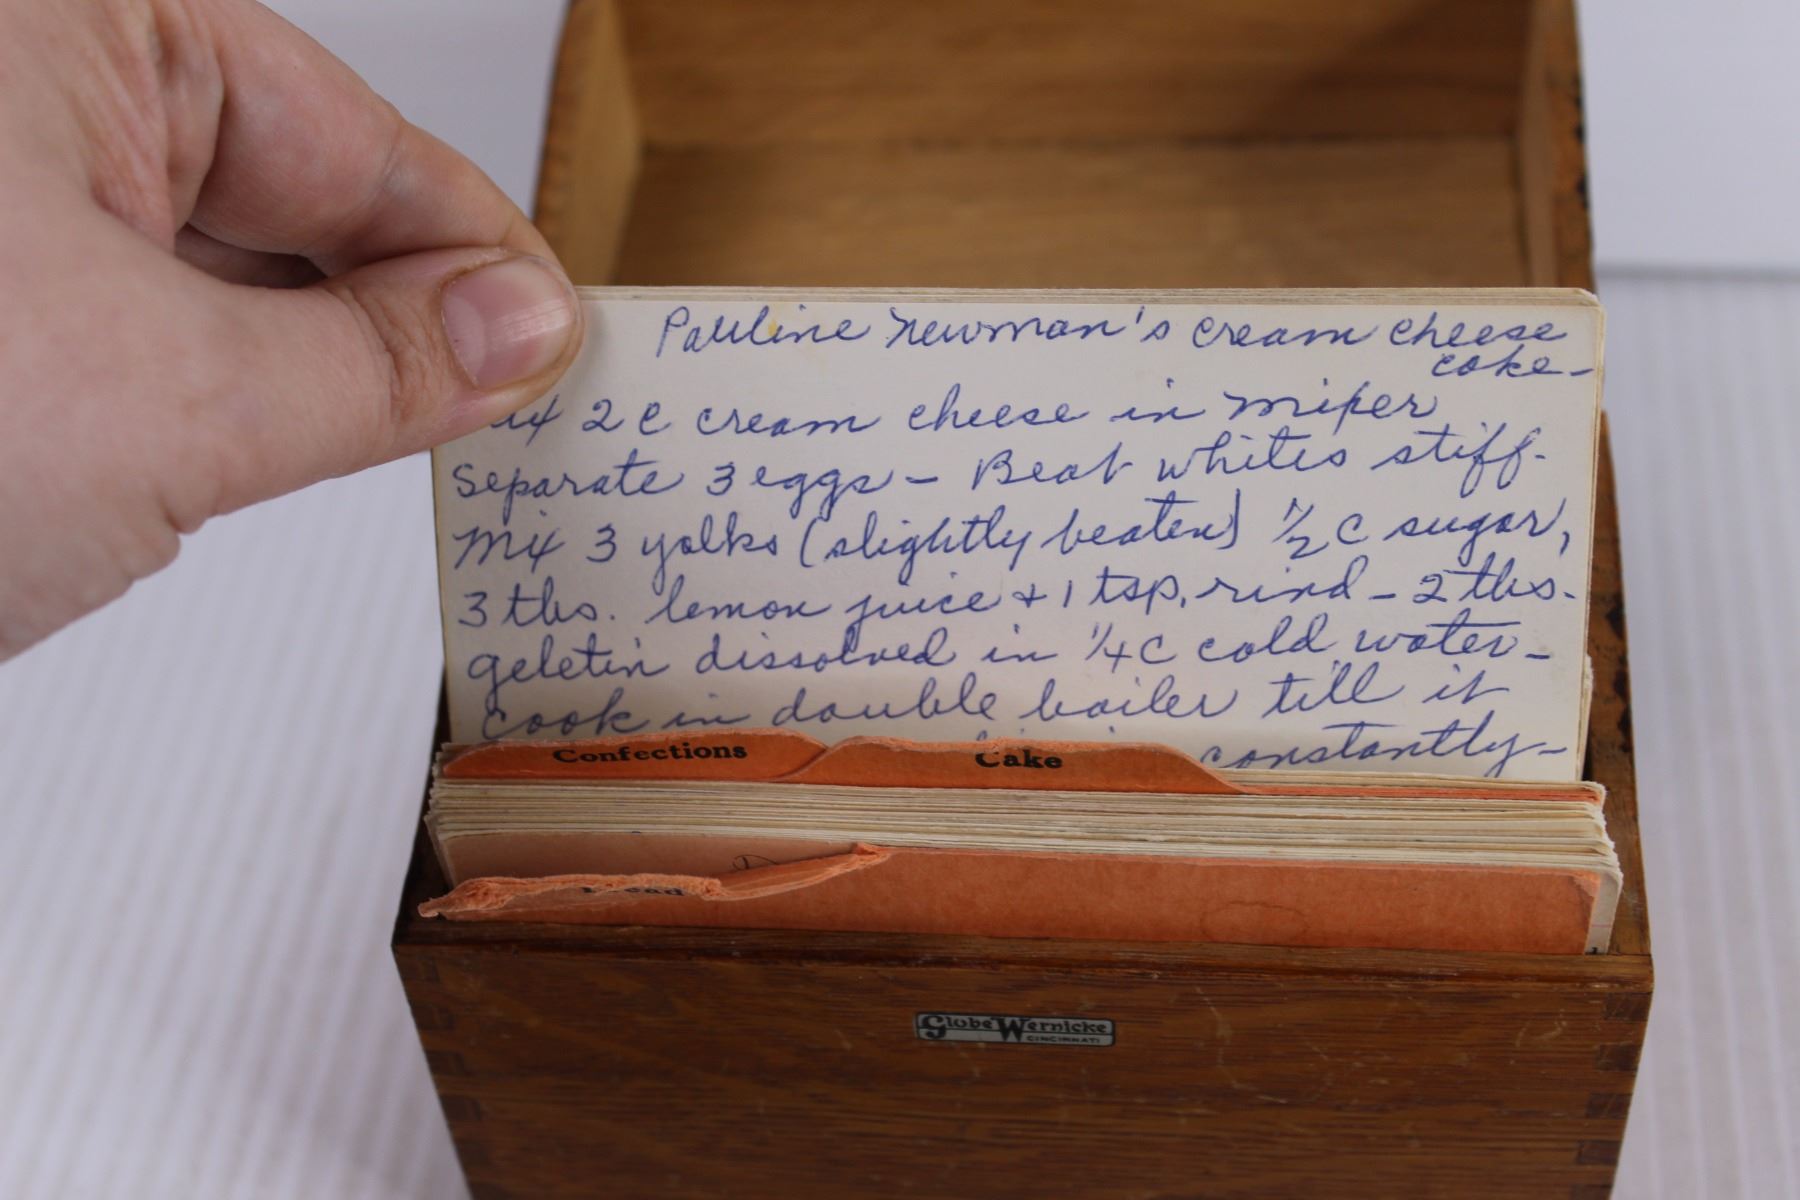 Pauline Newman's cream cheese
cake -
2 c cream cheese in mixer
separate 3 eggs - Beat whites stiff.
Mix 3 yolks (slightly beaten) 1/2 c sugar,
3 tbs. lemon juice + 1 tsp. rind - 2 tbs.
geletin dissolved in 1/4 c cold water -
cook in double boiler till it
constantly -
Confections
Cake
Globe Wernicke
CINCINNATI